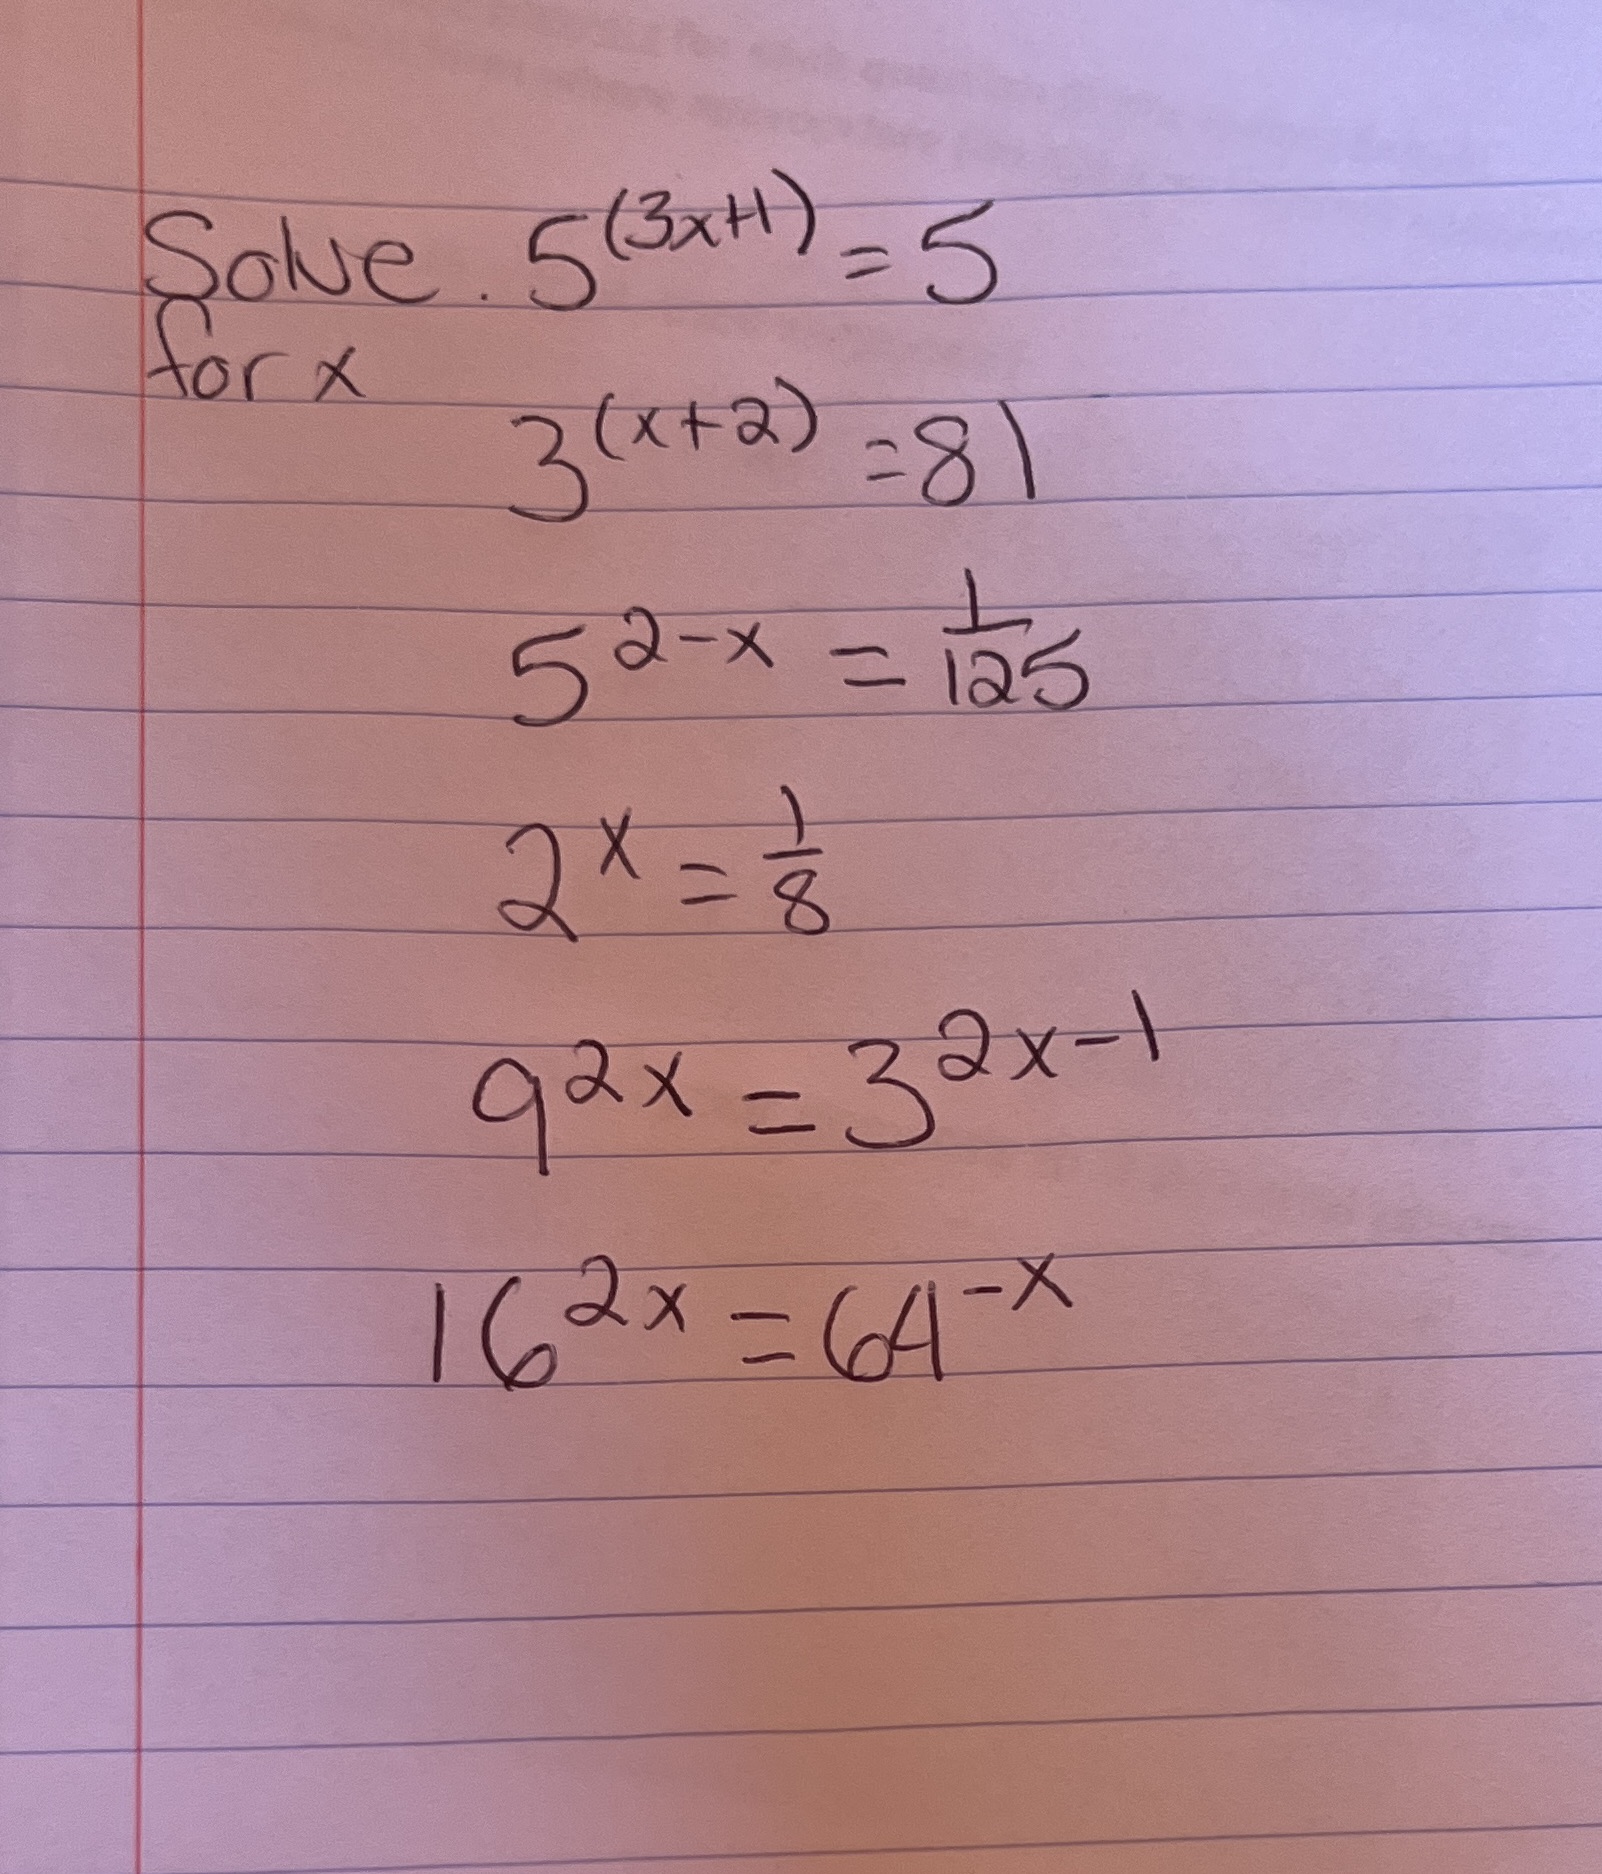 Solve. 5^(3x+1) = 5
for x
3^(x+2) = 81
5^2-x = 1/125
2^x = 1/8
9^2x = 3^2x-1
16^2x = 64^-x